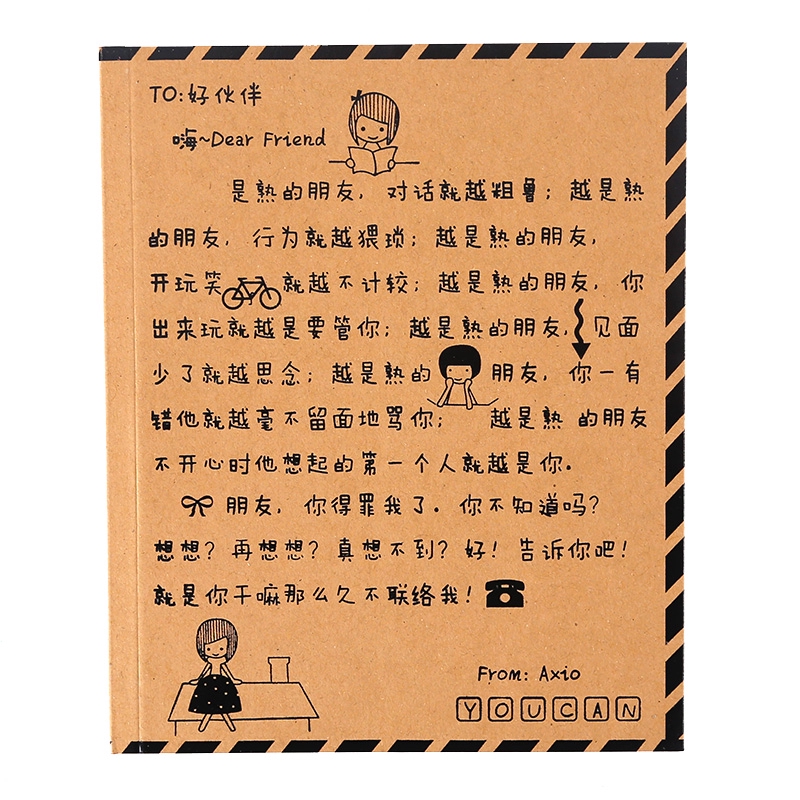 TO:好伙伴
嗨~Dear Friend
是熟的朋友，对话就越粗鲁；越是熟
的朋友，行为就越猥琐；越是熟的朋友，
开玩笑就越不计较；越是熟的朋友，你
出来玩就越是要管你；越是熟的朋友，见面
少了就越思念；越是熟的朋友，你一有
错他就越毫不留面地骂你；越是熟的朋友
不开心时他想起的第一个人就越是你。
朋友，你得罪我了。你不知道吗？
想想？再想想？真想不到？好！告诉你吧！
就是你干嘛那么久不联络我！
From: Axio
YOUCAN